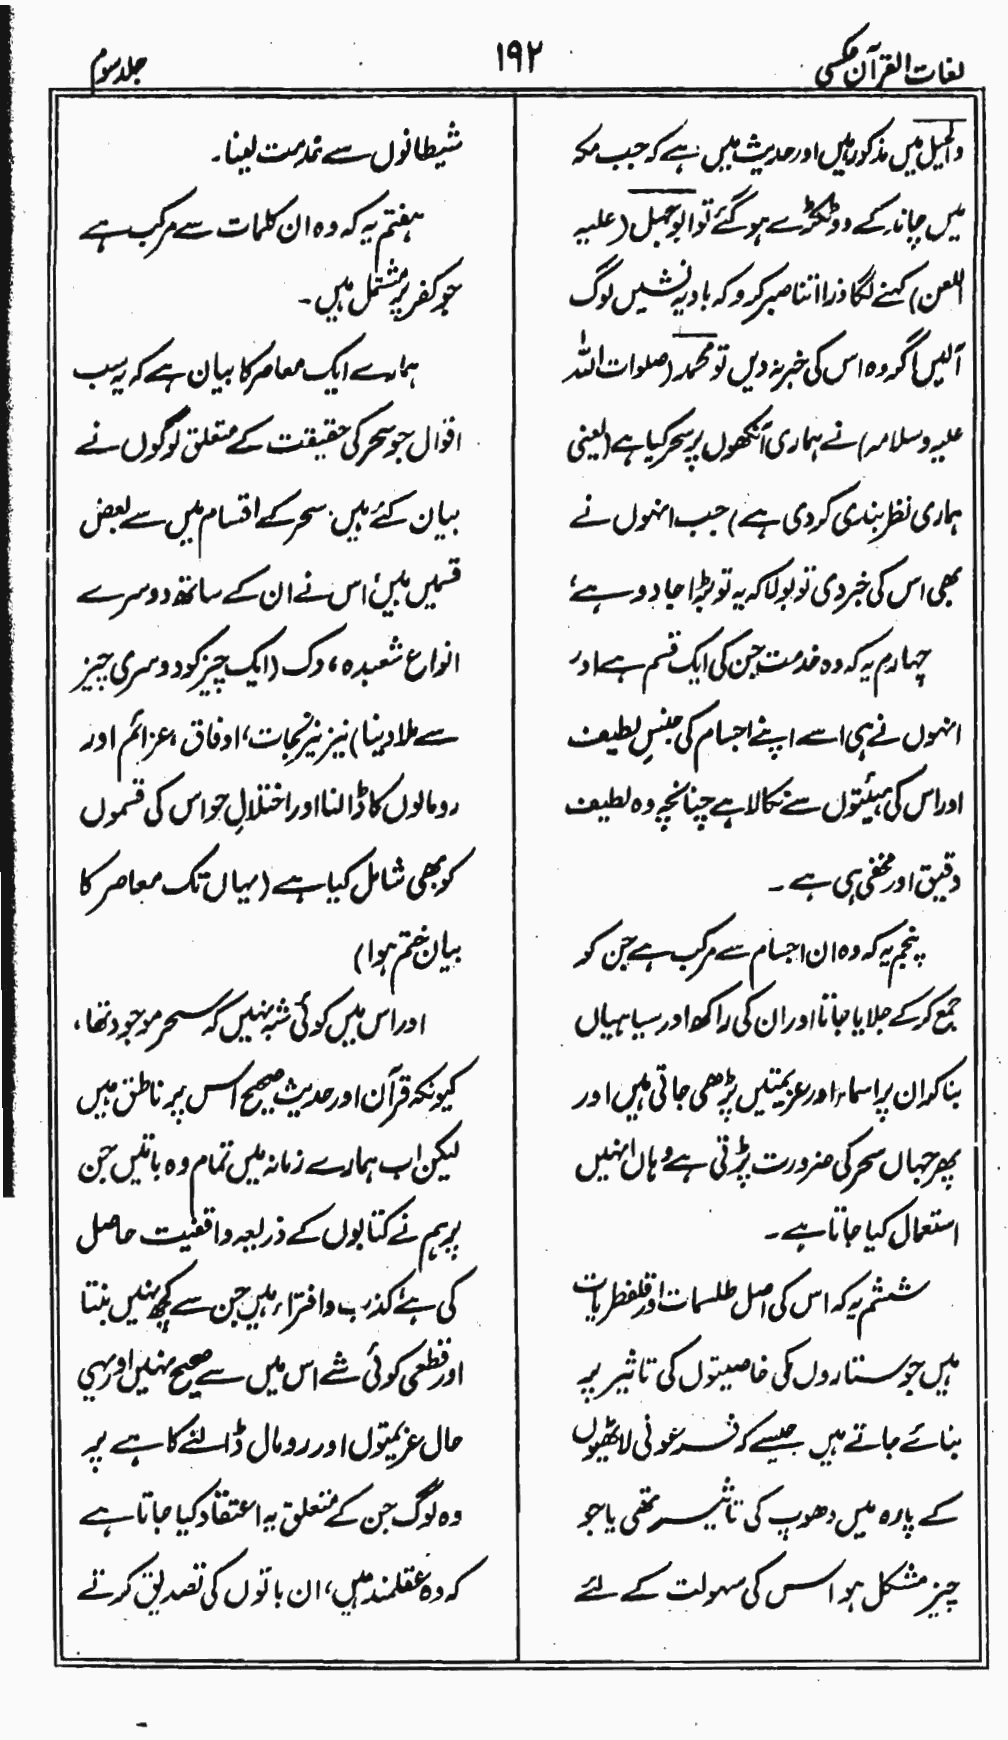 لغات القرآن عکسی
۱۹۲
جلد سوم
والخیل میں مذکور ہیں اور حدیث میں ہے کہ جب مکہ
میں چاند کے دو ٹکڑے ہو گئے تو ابوجہل (علیہ
اللعن) کہنے لگا ذرا اتنا صبر کرو کہ بادیہ نشیں لوگ
آلیں اگر وہ اس کی خبر نہ دیں تو محمد (صلوات اللہ
علیہ وسلامہ) نے ہماری آنکھوں پر سحر کیا ہے (یعنی
ہماری نظر بندی کر دی ہے) جب انہوں نے
بھی اس کی خبر دی تو بولا کہ یہ تو بڑا جادو ہے،
چہارم یہ کہ وہ خدمت جن کی ایک قسم ہے اور
انہوں نے ہی اسے اپنے اجسام کی جنسِ لطیف
اور اس کی ہیئتوں سے نکالا ہے چنانچہ وہ لطیف
دقیق اور مخفی ہی ہے ۔
پنجم یہ کہ وہ ان اجسام سے مرکب ہے جن کو
جمع کر کے جلایا جاتا اور ان کی راکھ اور سیاہیاں
بنا کر ان پر اسماء اور عزیمتیں پڑھی جاتی ہیں اور
پھر جہاں سحر کی ضرورت پڑتی ہے وہاں انہیں
استعمال کیا جاتا ہے ۔
ششم یہ کہ اس کی اصل طلسمات اور قلفطریات
ہیں جو ستاروں کی خاصیتوں کی تاثیر پر
بنائے جاتے ہیں جیسے کہ فرعونی لاٹھیوں
کے پارہ میں دھوپ کی تاثیر تھی یا جو
چیز مشکل ہو اس کی سہولت کے لئے
شیطانوں سے خدمت لینا ۔
ہفتم یہ کہ وہ ان کلمات سے مرکب ہے
جو کفر پر مشتمل ہیں ۔
ہمارے ایک معاصر کا بیان ہے کہ یہ سب
اقوال جو سحر کی حقیقت کے متعلق لوگوں نے
بیان کئے ہیں سحر کے اقسام میں سے بعض
قسمیں ہیں، اس نے ان کے ساتھ دوسرے
انواع شعبدہ، دک (ایک چیز کو دوسری چیز
سے ملا دینا) نیز نیرنجات، اوفاق، عزائم اور
رومالوں کا ڈالنا اور اختلالِ حواس کی قسموں
کو بھی شامل کیا ہے (یہاں تک معاصر کا
بیان ختم ہوا)
اور اس میں کوئی شبہ نہیں کہ سحر موجود تھا،
کیونکہ قرآن اور حدیث صحیح اس پر ناطق ہیں
لیکن اب ہمارے زمانہ میں تمام وہ باتیں جن
پر ہم نے کتابوں کے ذریعہ واقفیت حاصل
کی ہے، کذب و افتراء ہیں جن سے کچھ نہیں بنتا
اور قطعی کوئی شے اس میں سے صحیح نہیں اور یہی
حال عزیمتوں اور رومال ڈالنے کا ہے پر
وہ لوگ جن کے متعلق یہ اعتقاد کیا جاتا ہے
کہ وہ عقلمند ہیں، ان باتوں کی تصدیق کرتے